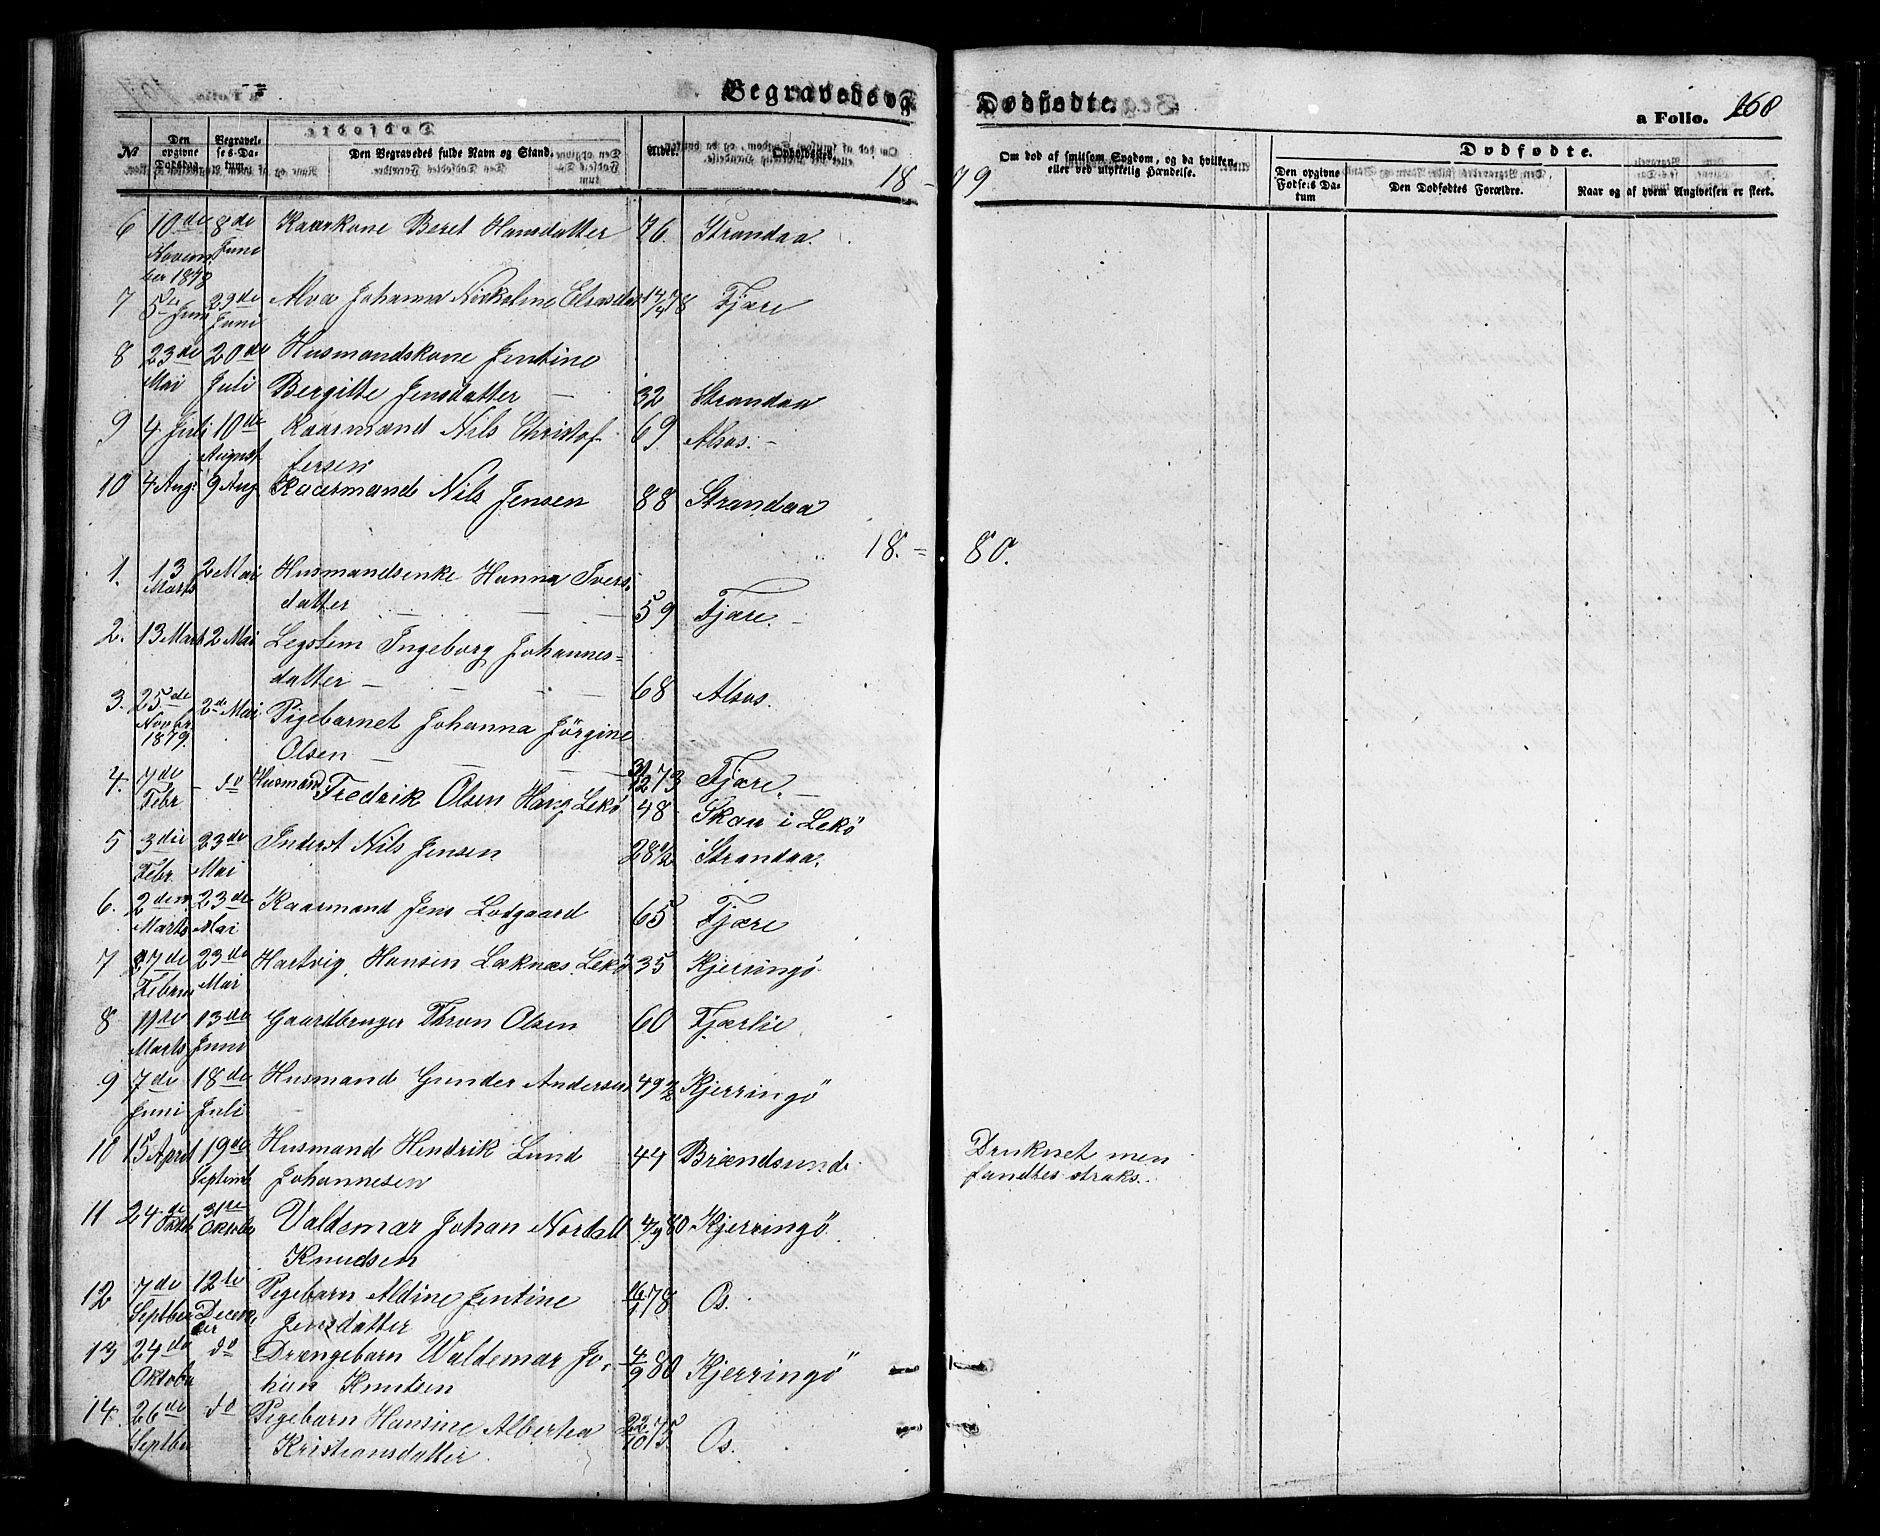 Begravede og Dødfødte.
a Folio. 268
No
Den opgivne Dødsdag.
Begravelses-Datum.
Den Begravedes fulde Navn og Stand.
Alder.
Opholdssted.
Om død af smitsom Sygdom, og da hvilken, eller ved ulykkelig Hændelse.
Dødfødte.
Den opgivne Fødsels Datum
Den Dødfødtes Forældre.
Naar og af hvem Angivelsen er skeet.
18 - 79
6 10de November 1878 8de Juni Kaarkone Beret Hansdatter 76 Strandaa.
7 5te Juni 29de Juni Alva Johanna Nickoline Elrasdat 14/4 78 Fjære
8 23de Mai 20de Juli Husmandskone Jentine
Bergitte Jensdatter — 32 Strandaa
9 4 Juli 10de August Kaarmand Nils Christof-
fersen 69 Alsos. -
10 4 Aug: 9 Aug Kaarmand Nils Jensen 88 Strandaa
18. = 80.
1. 13 Marts 2 Mai Husmandsenke Hanna Ivers-
datter — — — 59 Fjære. -
2. 13 Marts 2 Mai Legslem Ingeborg Johannes=
datter — — — 68 Alsos.
3. 25de Novbr 1879. 2de Mai Pigebarnet Johanna Jörgine
Olsen — — — 31/12 73 Fjære. -
4. 7de Febr - do Husmand Fredrik Olsen Haug Lekö 48 Skau i Lekö
5 3die Febr. 23de Mai Inderst Nils Jensen 28 1/2 Strandaa.
6. 2den Marts 23de Mai Kaarmand Jens Lodgaard 65 Fjære
7 27de Februar 23de Mai Hartvig Hansen Læknæs Lekö 35 Kjerringö
8 11te Marts 13de Juni Gaardbruger Thron Olsen 60 Fjærlie
9 7de Juni 18de Juli Husmand Gunder Andersen 49 1/2 Kjerringö
10 15 April 19de Septembr Husmand Hendrik Lund
Johannesen 44 Brændsund. Druknet men
fandtes straks.
11 24de Oktob 31te Oktober Valdemar Johan Nordall
Knudsen 4/9 80 Kjerringö
12 7de Septber 12te December Pigebarn Aldine Jentine
Jensdatter 16/1 78 Os.
13 24de Oktober do Drængebarn Waldemar Jo-
han Knutsen 4/9 80 Kjerringö
14. 26de Septber do Pigebarn Hansine Albertea
Kristiansdatter 22/10 75 Os.